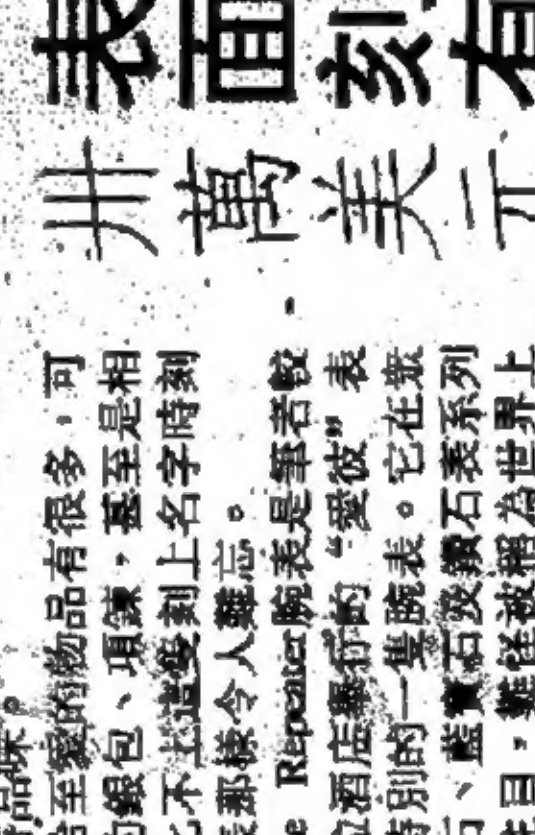 表面刻有
卅萬美元
品味。
至愛的物品有很多，可
的銀包、項鍊，甚至是相
不上這隻刻上名字時刻
那樣令人難忘。
Repeater 腕表是筆者
酒店舉行的“愛彼”表
特別的一隻腕表。它在眾
、藍寶石及鑽石表系列
目，難怪被稱為世界上